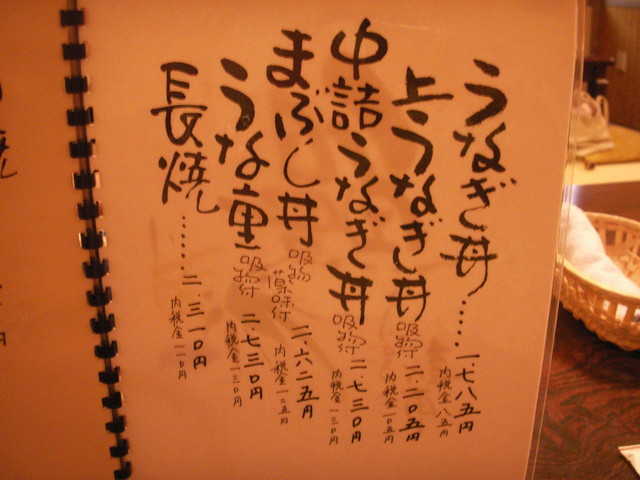 うなぎ丼……一.七八五円
内税金八五円
上うなぎ丼 吸物付 二.二〇五円
内税金一〇五円
中詰うなぎ丼 吸物付 二.七三〇円
内税金一三〇円
まぶし丼 吸物 薬味付 二.六二五円
内税金一二五円
うな重 吸物付 二.七三〇円
内税金一三〇円
長焼……二.三一〇円
内税金一一〇円